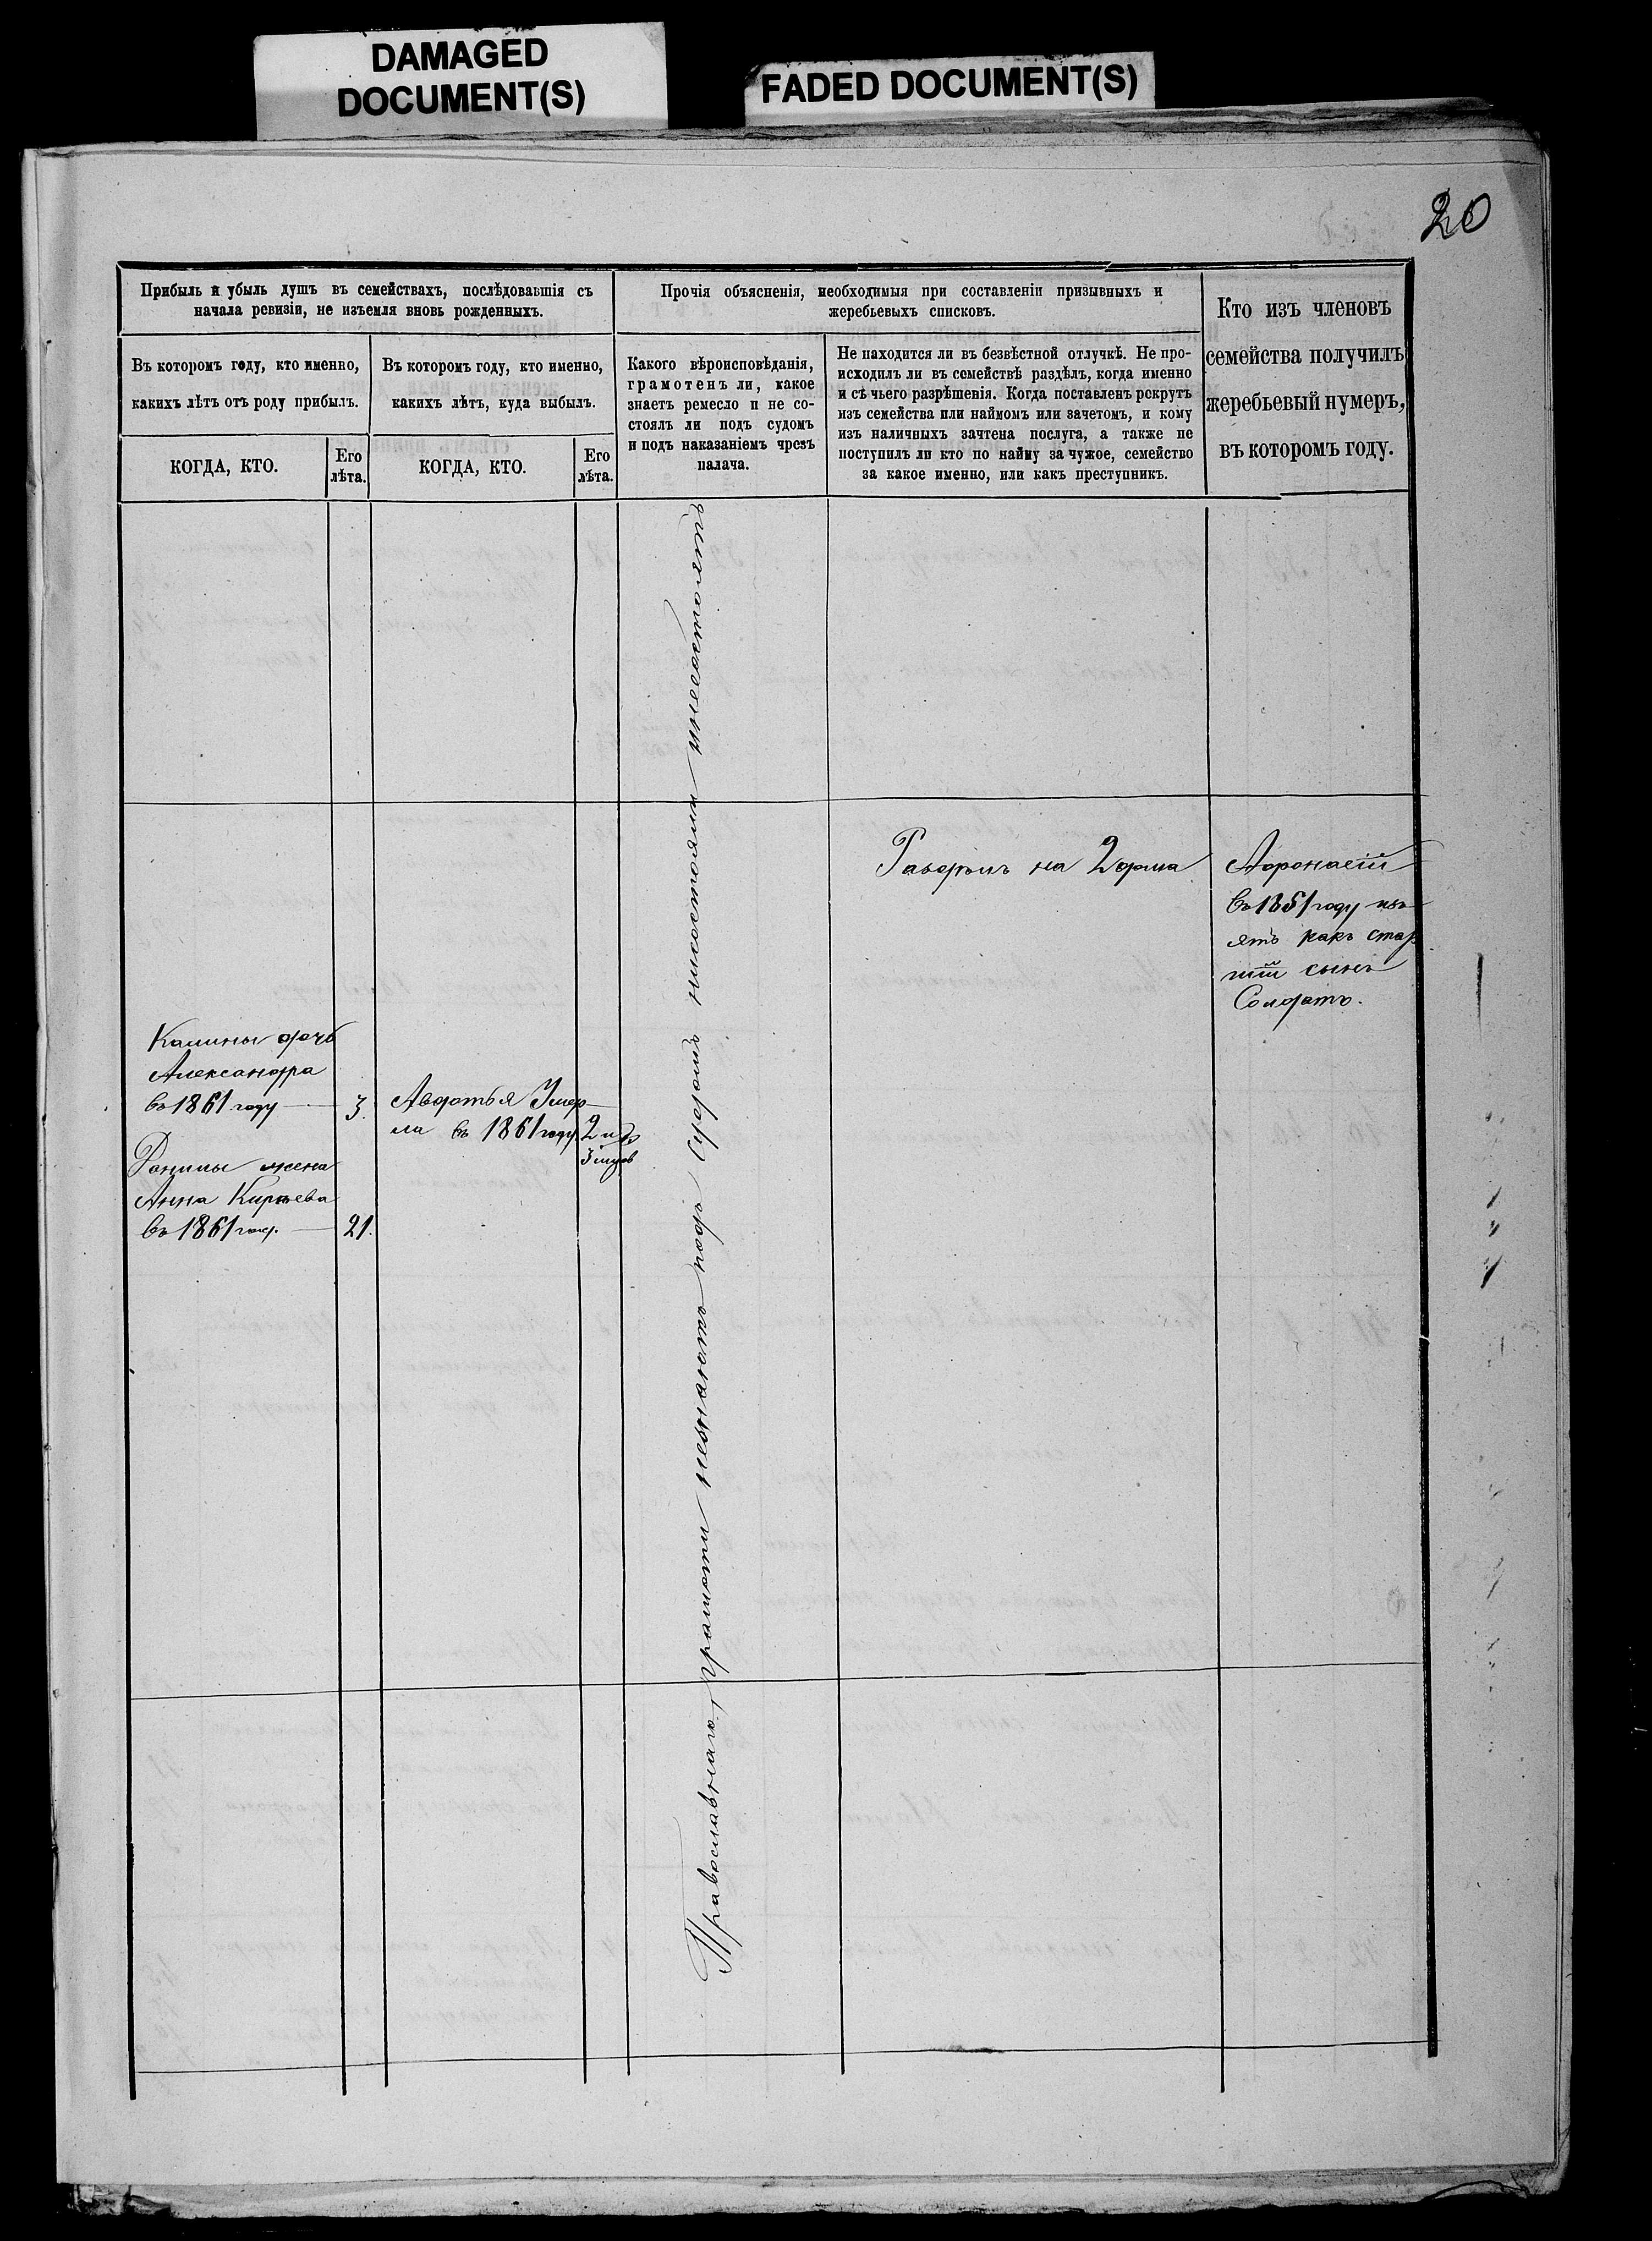 DAMAGED
DOCUMENT(S)
FADED DOCUMENT(S)
20
Прибыль и убыль душъ въ семействахъ, послѣдовавшія съ
начала ревизіи, не изъемля вновь рожденныхъ.
Прочія объясненія, необходимыя при составленіи призывныхъ и
жеребьевыхъ списковъ.
Кто изъ членовъ
семейства получилъ
жеребьевый нумеръ,
въ которомъ году.
Въ которомъ году, кто именно,
какихъ лѣтъ отъ роду прибылъ.
Въ которомъ году, кто именно,
какихъ лѣтъ, куда выбылъ.
Какого вѣроисповѣданія,
грамотенъ ли, какое
знаетъ ремесло и не со-
стоялъ ли подъ судомъ
и подъ наказаніемъ чрезъ
палача.
Не находится ли въ безвѣстной отлучкѣ. Не про-
исходилъ ли въ семействѣ раздѣлъ, когда именно
и съ чьего разрѣшенія. Когда поставленъ рекрутъ
изъ семейства или наймомъ или зачетомъ, и кому
изъ наличныхъ зачтена послуга, а также не
поступилъ ли кто по найму за чужое, семейство
за какое именно, или какъ преступникъ.
КОГДА, КТО.
Его
лѣта.
КОГДА, КТО.
Его
лѣта.
Православнаго, грамоти незнаютъ подъ Судомъ нисостояли инесостоятъ
Раздѣлъ на 2 дома
Афонасій
въ 1851 году изъ
ятъ какъ стар
шій сынъ
Солдатъ.
Калины дочь
Александра
въ 1861 году 3.
Авдотья Умер
ла въ 1861 году 2
Данилы жена
Анна Кирѣева
въ 1861 году. 21.